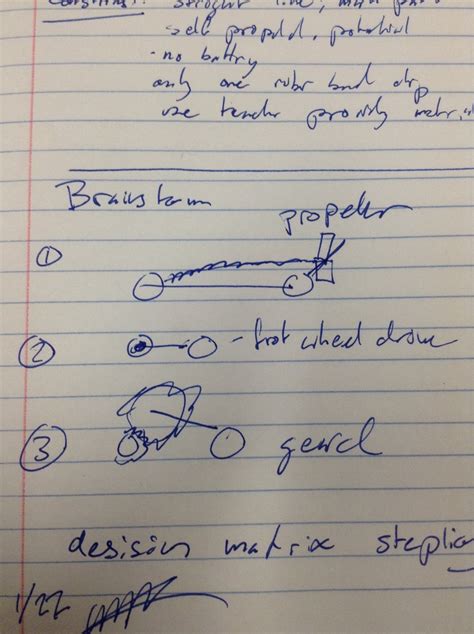 constraint: straight line,
self propeld, potential
- no battry
only one rubr band
use teacher providy
Brainstorm
propeler
①
② - frot wheel drive
③ geard
desision matrix
1/22